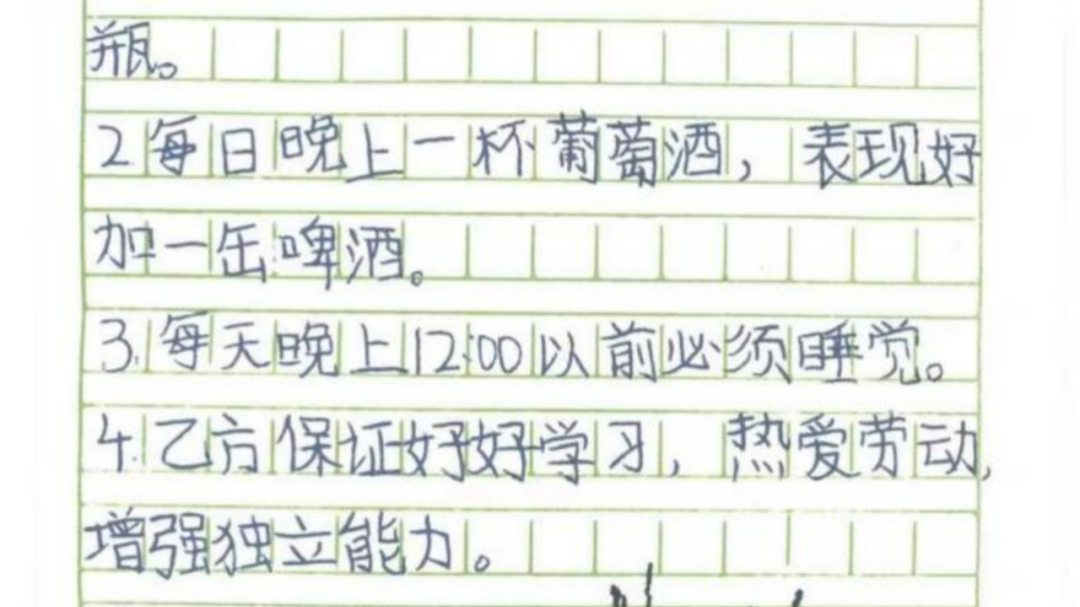 瓶。
2.每日晚上一杯葡萄酒，表现好
加一缶啤酒。
3.每天晚上12:00以前必须睡觉。
4.乙方保证好好学习，热爱劳动，
增强独立能力。